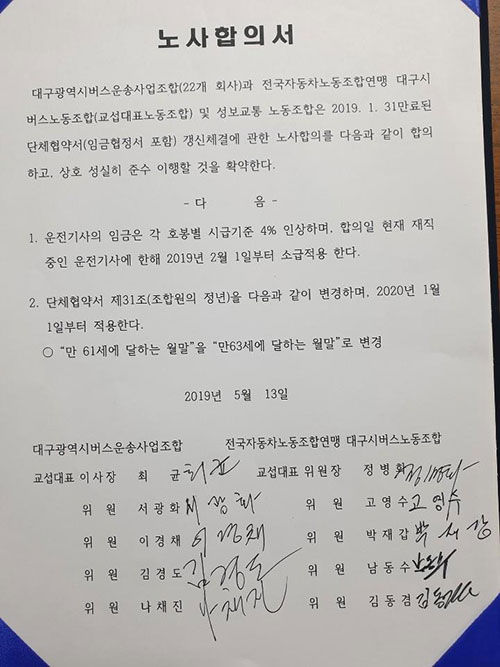 노사합의서
대구광역시버스운송사업조합(22개 회사)과 전국자동차노동조합연맹 대구시
버스노동조합(교섭대표노동조합) 및 성보교통 노동조합은 2019. 1. 31만료된
단체협약서(임금협정서 포함) 갱신체결에 관한 노사합의를 다음과 같이 합의
하고, 상호 성실히 준수 이행할 것을 확약한다.
- 다 음 -
1. 운전기사의 임금은 각 호봉별 시급기준 4% 인상하며, 합의일 현재 재직
중인 운전기사에 한해 2019년 2월 1일부터 소급적용 한다.
2. 단체협약서 제31조(조합원의 정년)을 다음과 같이 변경하며, 2020년 1월
1일부터 적용한다.
○ “만 61세에 달하는 월말”을 “만63세에 달하는 월말”로 변경
2019년 5월 13일
대구광역시버스운송사업조합 전국자동차노동조합연맹 대구시버스노동조합
교섭대표 이사장 최 균 최균 교섭대표 위원장 정병화 정병화
위 원 서광화 서광화 위 원 고영수 고영수
위 원 이경채 이경채 위 원 박재갑
위 원 김경도 김경도 위 원 남동수
위 원 나채진 나채진 위 원 김동겸